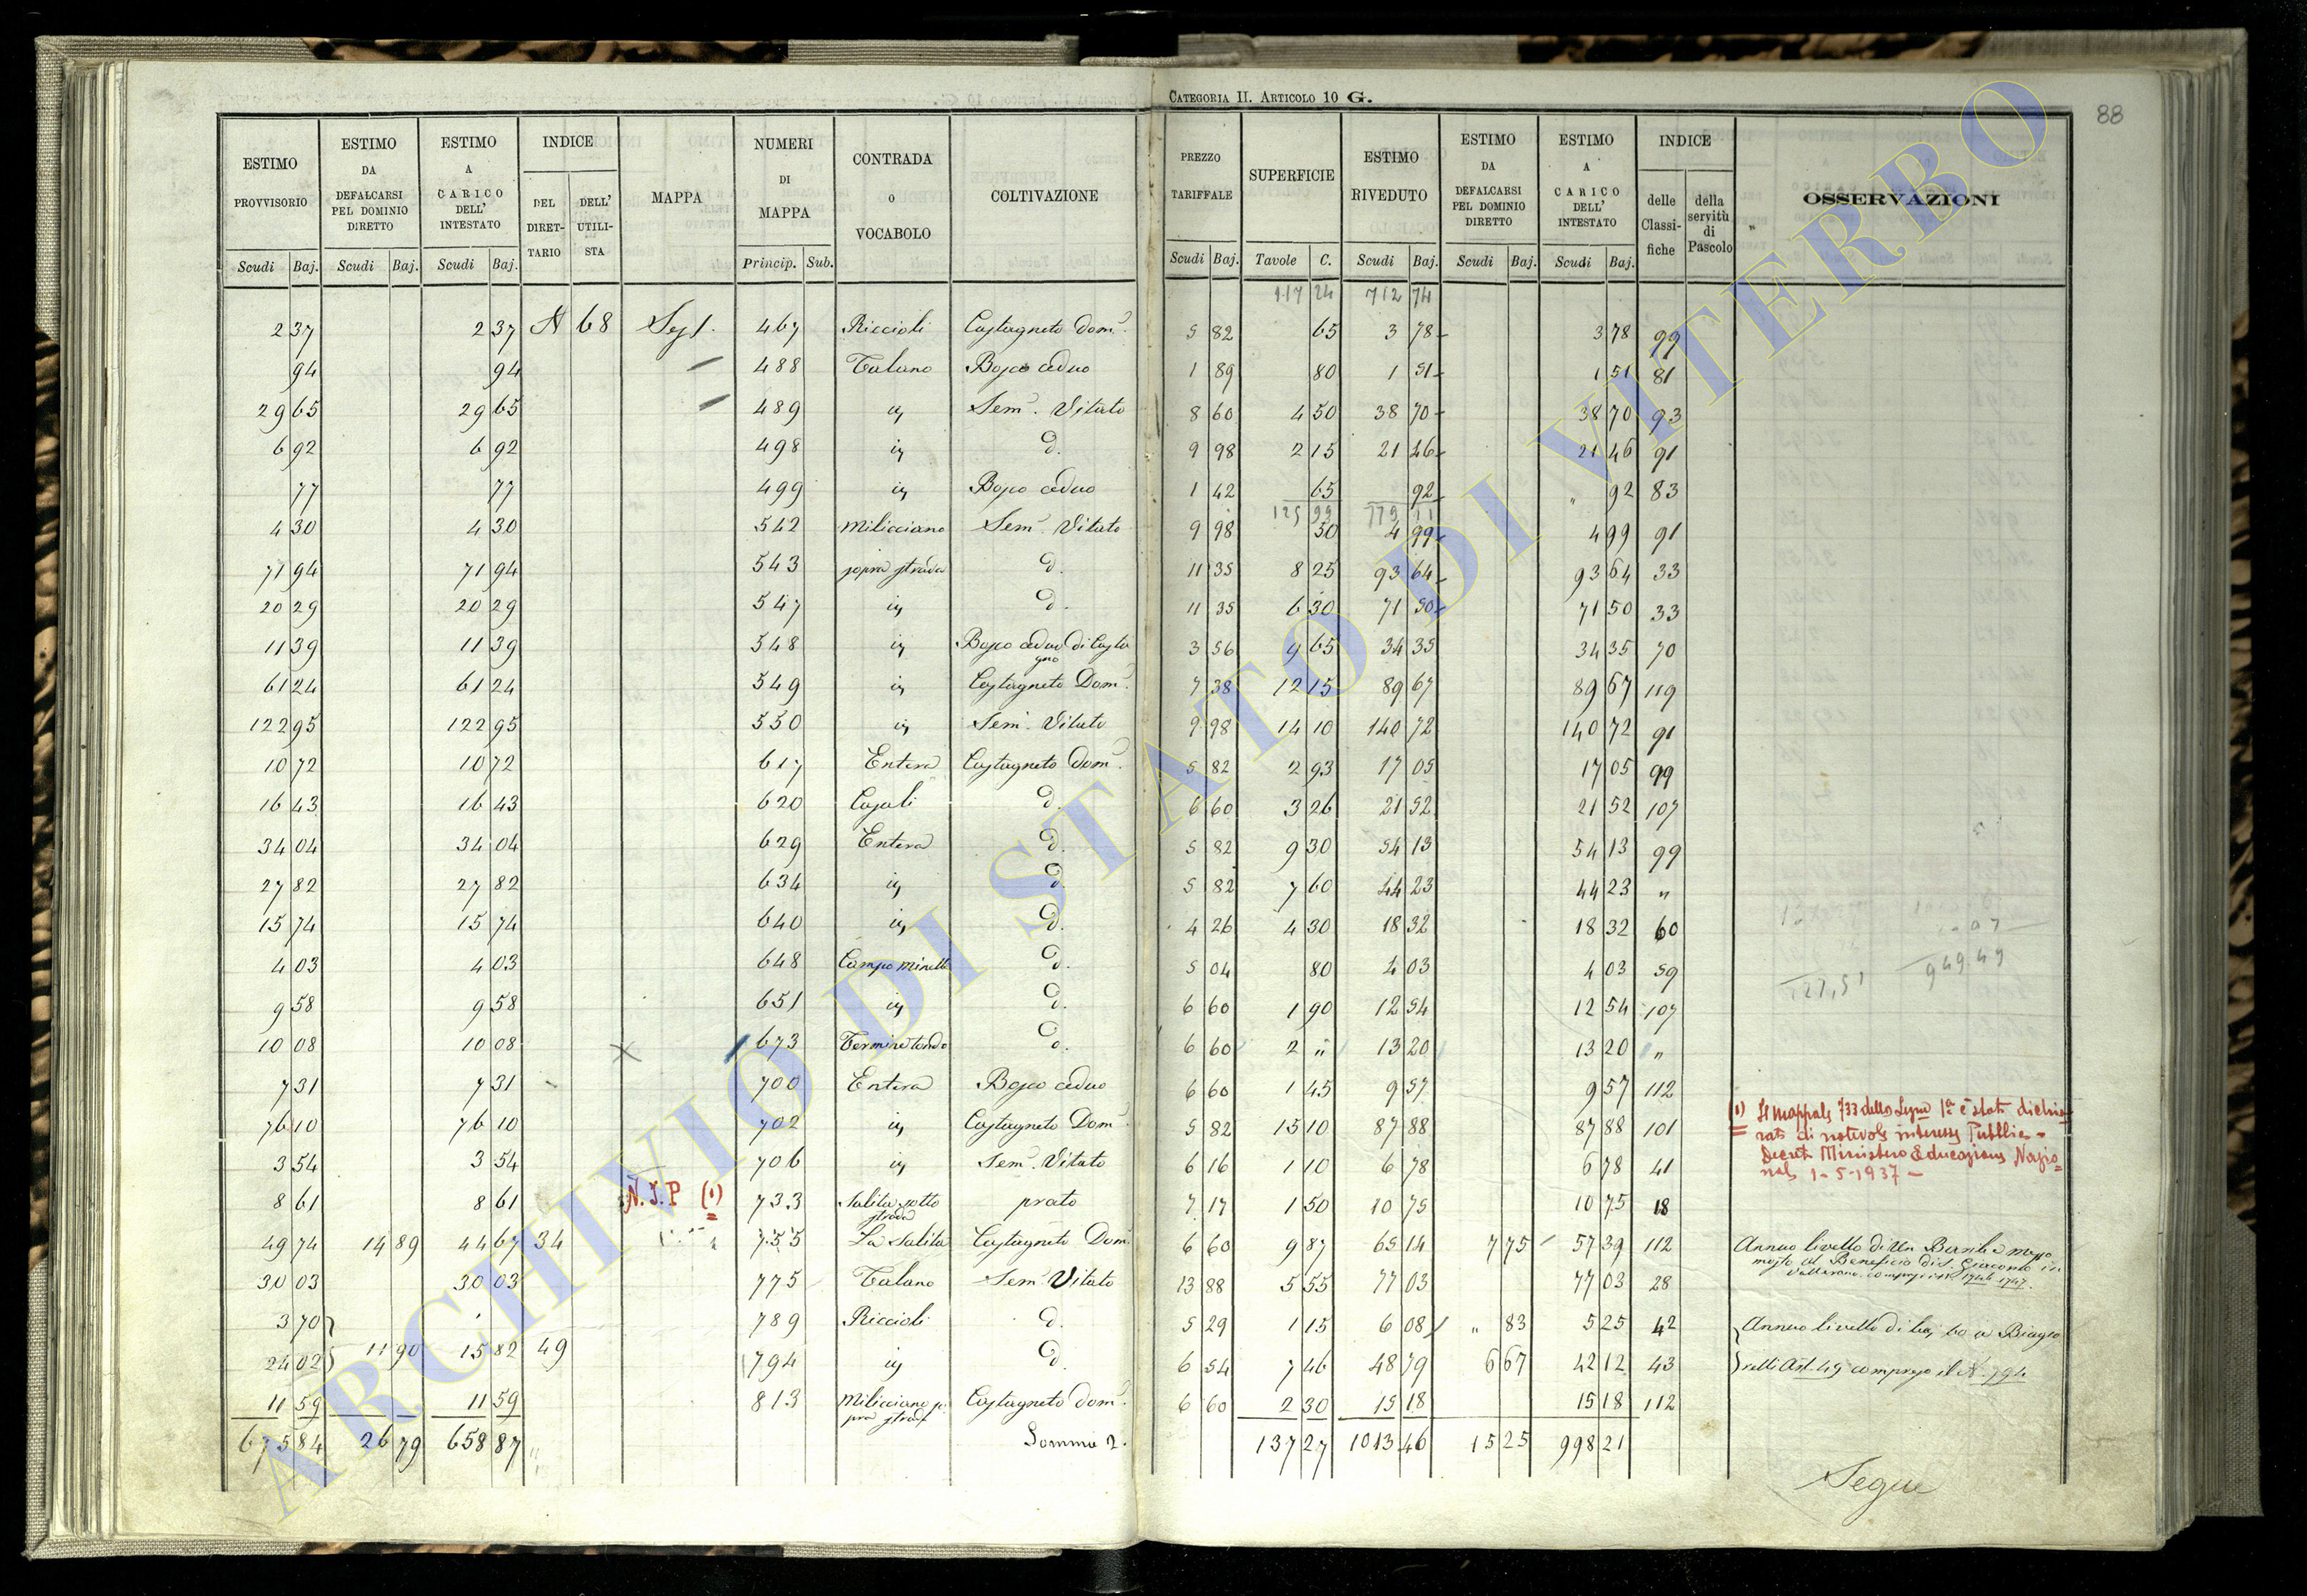 CATEGORIA II. ARTICOLO 10 G.
88
ESTIMO PROVVISORIO | ESTIMO DA DEFALCARSI PEL DOMINIO DIRETTO | ESTIMO A CARICO DELL' INTESTATO | INDICE DEL DIRETTARIO | DELL' UTILISTA | MAPPA | NUMERI DI MAPPA | CONTRADA O VOCABOLO | COLTIVAZIONE | PREZZO TARIFFALE | SUPERFICIE | ESTIMO RIVEDUTO | ESTIMO DA DEFALCARSI PEL DOMINIO DIRETTO | ESTIMO A CARICO DELL' INTESTATO | INDICE delle Classifiche | della servitù di Pascolo | OSSERVAZIONI
Scudi Baj. | Scudi Baj. | Scudi Baj. | Princip. Sub. | Scudi Baj. | Tavole C. | Scudi Baj. | Scudi Baj. | Scudi Baj.
117 24 | 712 74
2 37 | 2 37 | N 68 | 467 | Riccioli | Castagneto Dom. | 5 82 | 65 | 3 78 | 3 78 | 99
94 | 94 | 488 | Talano | Bosco ceduo | 1 89 | 80 | 1 51 | 1 51 | 81
29 65 | 29 65 | 489 | Sem. Vitato | 8 60 | 4 50 | 38 70 | 38 70 | 93
6 92 | 6 92 | 498 | d. | 9 98 | 2 15 | 21 46 | 21 46 | 91
77 | 77 | 499 | Bosco ceduo | 1 42 | 65 | 92 | " 92 | 83
125 99 | 779 11
4 30 | 4 30 | 542 | Milicciano | Sem. Vitato | 9 98 | 50 | 4 99 | 4 99 | 91
71 94 | 71 94 | 543 | sopra strada | d. | 11 35 | 8 25 | 93 64 | 93 64 | 33
20 29 | 20 29 | 547 | d. | 11 35 | 6 30 | 71 50 | 71 50 | 33
11 39 | 11 39 | 548 | Bosco ceduo di Castagno | 3 56 | 9 65 | 34 35 | 34 35 | 70
61 24 | 61 24 | 549 | Castagneto Dom. | 7 38 | 12 15 | 89 67 | 89 67 | 119
122 95 | 122 95 | 550 | Sem. Vitato | 9 98 | 14 10 | 140 72 | 140 72 | 91
10 72 | 10 72 | 617 | Entera | Castagneto Dom. | 5 82 | 2 93 | 17 05 | 17 05 | 99
16 43 | 16 43 | 620 | Casali | d. | 6 60 | 3 26 | 21 52 | 21 52 | 107
34 04 | 34 04 | 629 | Entera | d. | 5 82 | 9 30 | 54 13 | 54 13 | 99
27 82 | 27 82 | 634 | d. | 5 82 | 7 60 | 44 23 | 44 23 | "
15 74 | 15 74 | 640 | d. | 4 26 | 4 30 | 18 32 | 18 32 | 60
4 03 | 4 03 | 648 | Campo Minelli | d. | 5 04 | 80 | 4 03 | 4 03 | 59
9 58 | 9 58 | 651 | d. | 6 60 | 1 90 | 12 54 | 12 54 | 107
949.49
10 08 | 10 08 | 673 | Termine tondo | d. | 6 60 | 2 " | 13 20 | 13 20 | "
7 31 | 7 31 | 700 | Entera | Bosco ceduo | 6 60 | 1 45 | 9 57 | 9 57 | 112
76 10 | 76 10 | 702 | Castagneto Dom. | 5 82 | 15 10 | 87 88 | 87 88 | 101
(1) Il mappale 733 della Sezne 1a è stato dichia-
rato di notevole interesse Pubblico -
Decreto Ministero Educazione Nazio
nale 1-5-1937 -
3 54 | 3 54 | 706 | Sem. Vitato | 6 16 | 1 10 | 6 78 | 6 78 | 41
8 61 | 8 61 | N.I.P (1) | 733 | Salita sotto strada | prato | 7 17 | 1 50 | 10 75 | 10 75 | 18
49 74 | 14 89 | 44 67 | 34 | 755 | La Salita | Castagneto Dom. | 6 60 | 9 87 | 65 14 | 7 75 | 57 39 | 112 | Annuo livello di Un Barile e mezzo
mosto al Beneficio di S. Giacomo in
Vallerano compresi i Ni 1746 1747.
30 03 | 30 03 | 775 | Talano | Sem. Vitato | 13 88 | 5 55 | 77 03 | 77 03 | 28
3 70 | 789 | Riccioli | d. | 5 29 | 1 15 | 6 08 | " 83 | 5 25 | 42 | Annuo livello di baj 60 a Biagio
24 02 | 11 90 | 15 82 | 49 | 794 | d. | 6 54 | 7 46 | 48 79 | 6 67 | 42 12 | 43 | Art. 49 compreso il N. 794
11 59 | 11 59 | 813 | Milicciano sopra strada | Castagneto Dom. | 6 60 | 2 30 | 15 18 | 15 18 | 112
675 84 | 26 79 | 658 87 | Somma 2. | 137 27 | 1013 46 | 15 25 | 998 21
Segue
ARCHIVIO DI STATO DI VITERBO